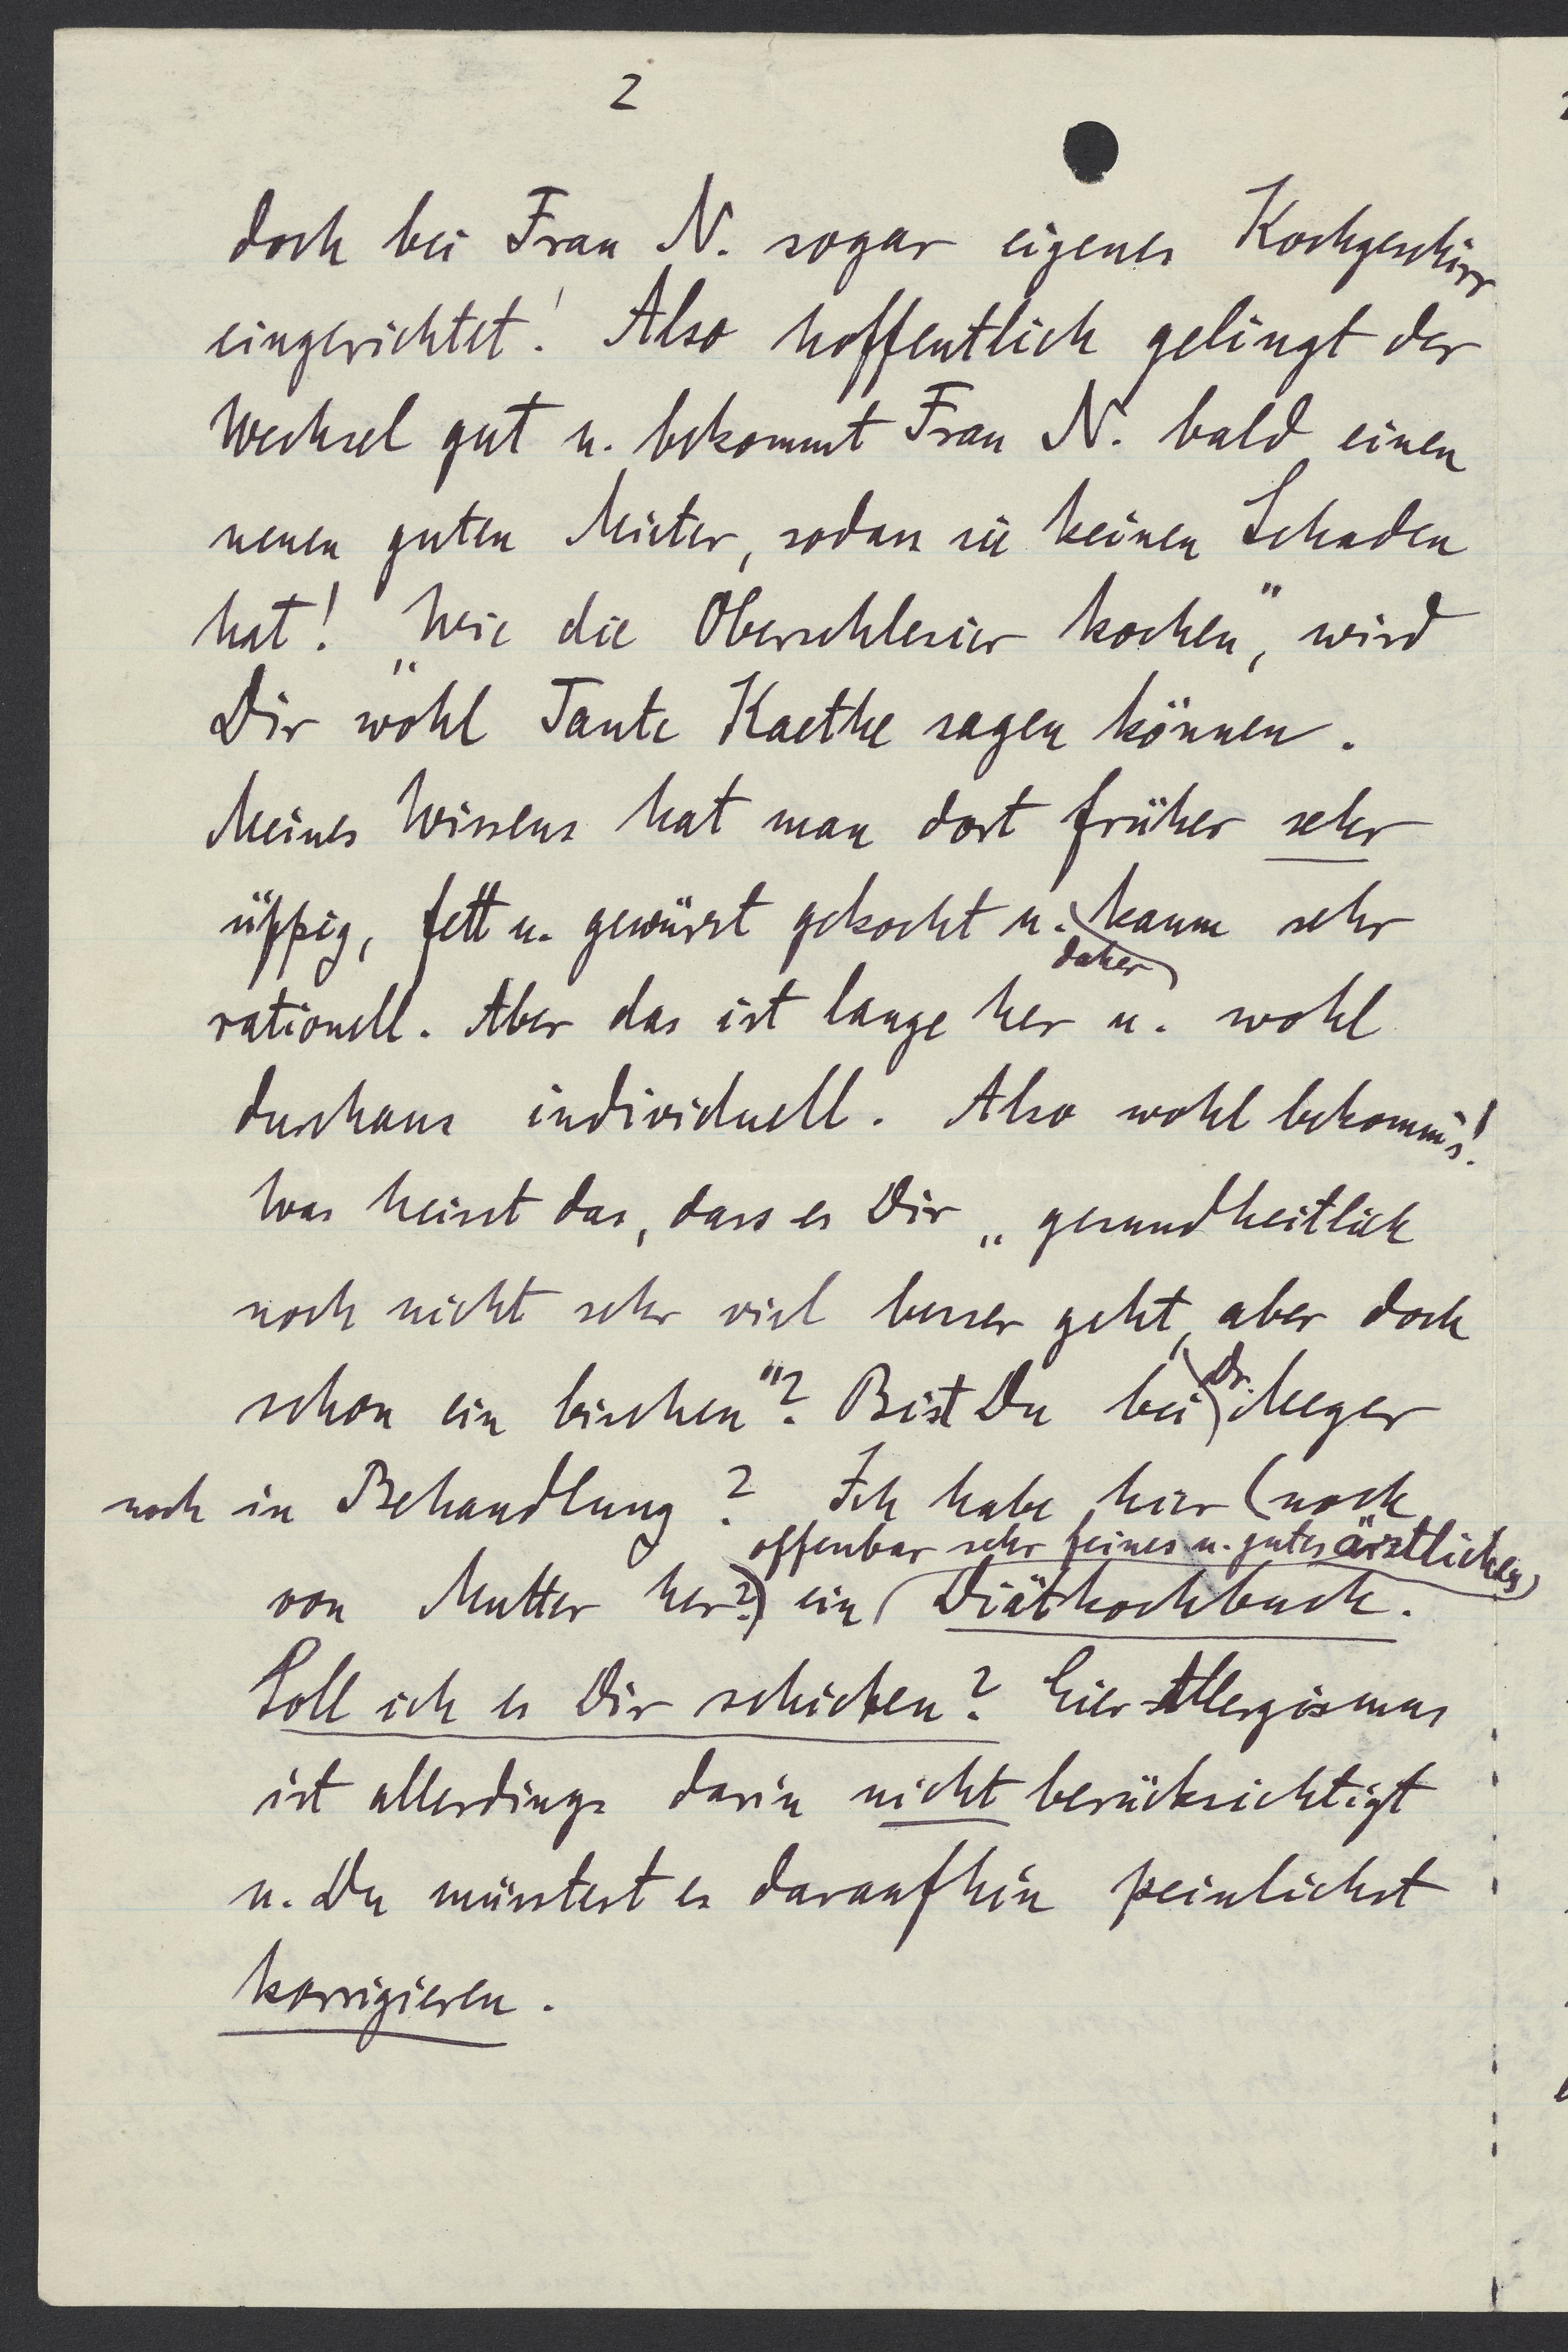 2
doch bei Frau N. sogar eigenes Kochgeschirr
eingerichtet! Also hoffentlich gelingt der
Wechsel gut u. bekommt Frau N. bald einen
neuen guten Mieter, sodass sie keinen Schaden
hat! „Wie die Oberschlesier kochen“, wird
Dir wohl Tante Kaethe sagen können.
Meines Wissens hat man dort früher sehr
üppig, fett u. gewürzt gekocht u. kaum sehr
daher
rationell. Aber das ist lange her u. wohl
durchaus individuell. Also wohl bekomm's!
Was heisst das, dass es Dir „gesundheitlich
noch nicht sehr viel besser geht, aber doch
schon ein bischen“? Bist Du bei Dr. Meyer
noch in Behandlung? Ich habe hier (noch
offenbar sehr feines u. gutes ärztliches
von Mutter her?) ein Diätkochbuch.
Soll ich es Dir schicken? Eier-Allergismus
ist allerdings darin nicht berücksichtigt
u. Du müsstest es daraufhin peinlichst
korrigieren.